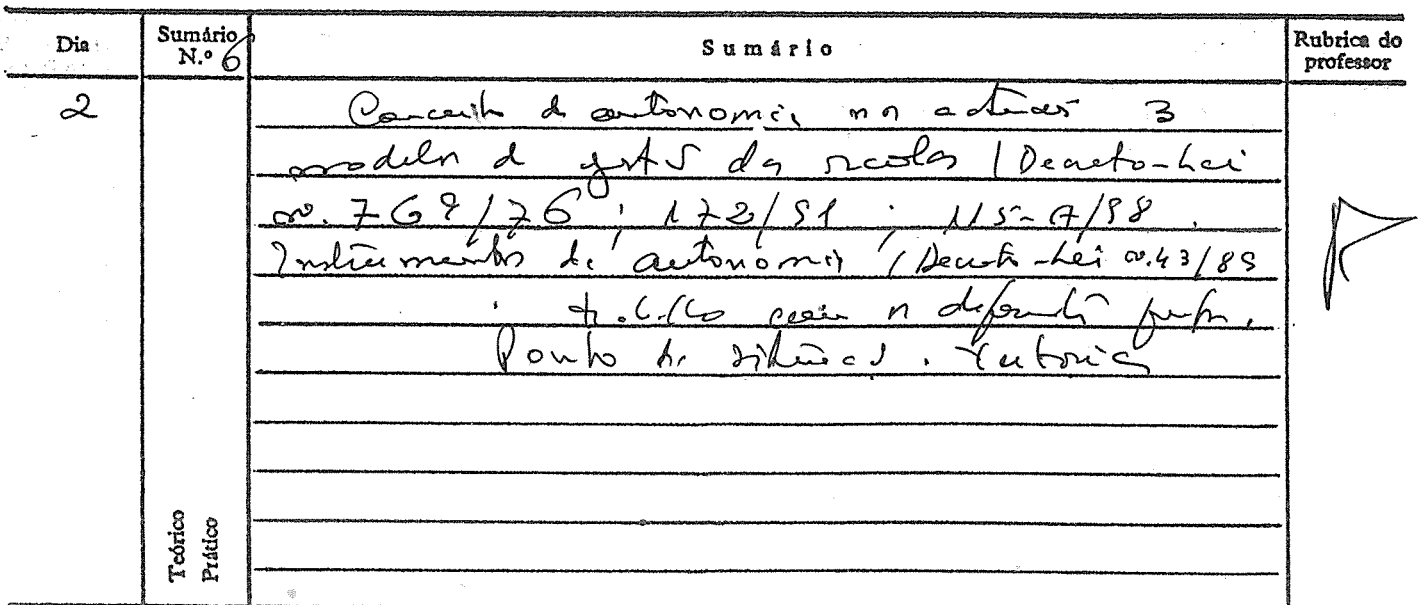 Dia
Sumário N.º 6
Sumário
Rubrica do professor
2
Conceito de autonomia nos actuais 3
modelos de gestão das escolas (Decreto-Lei
nº. 769/76 ; 172/91 ; 115-A/98.
Instrumentos de autonomia (Decreto-Lei nº.43/89
com os diferentes
Ponto de situação. Tutoria
Teórico
Prático